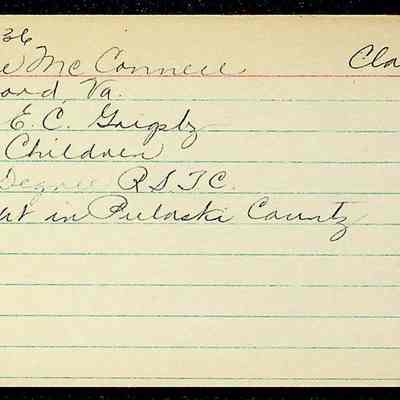 36
e McConnell Cla
ord, Va.
E. C. Grigsby
Children
Degree R.S.T.C.
ht in Pulaski County